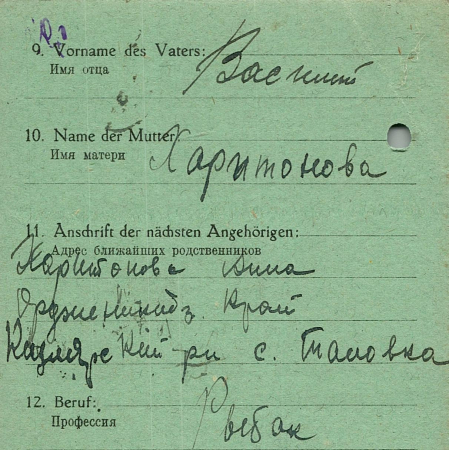 9. Vorname des Vaters:
Имя отца
Василий
10. Name der Mutter
Имя матери
Харитонова
11. Anschrift der nächsten Angehörigen:
Адрес ближайших родственников
Харитонова Анна
Орджоникидз. Край
рн с. Таловка
12. Beruf:
Профессия